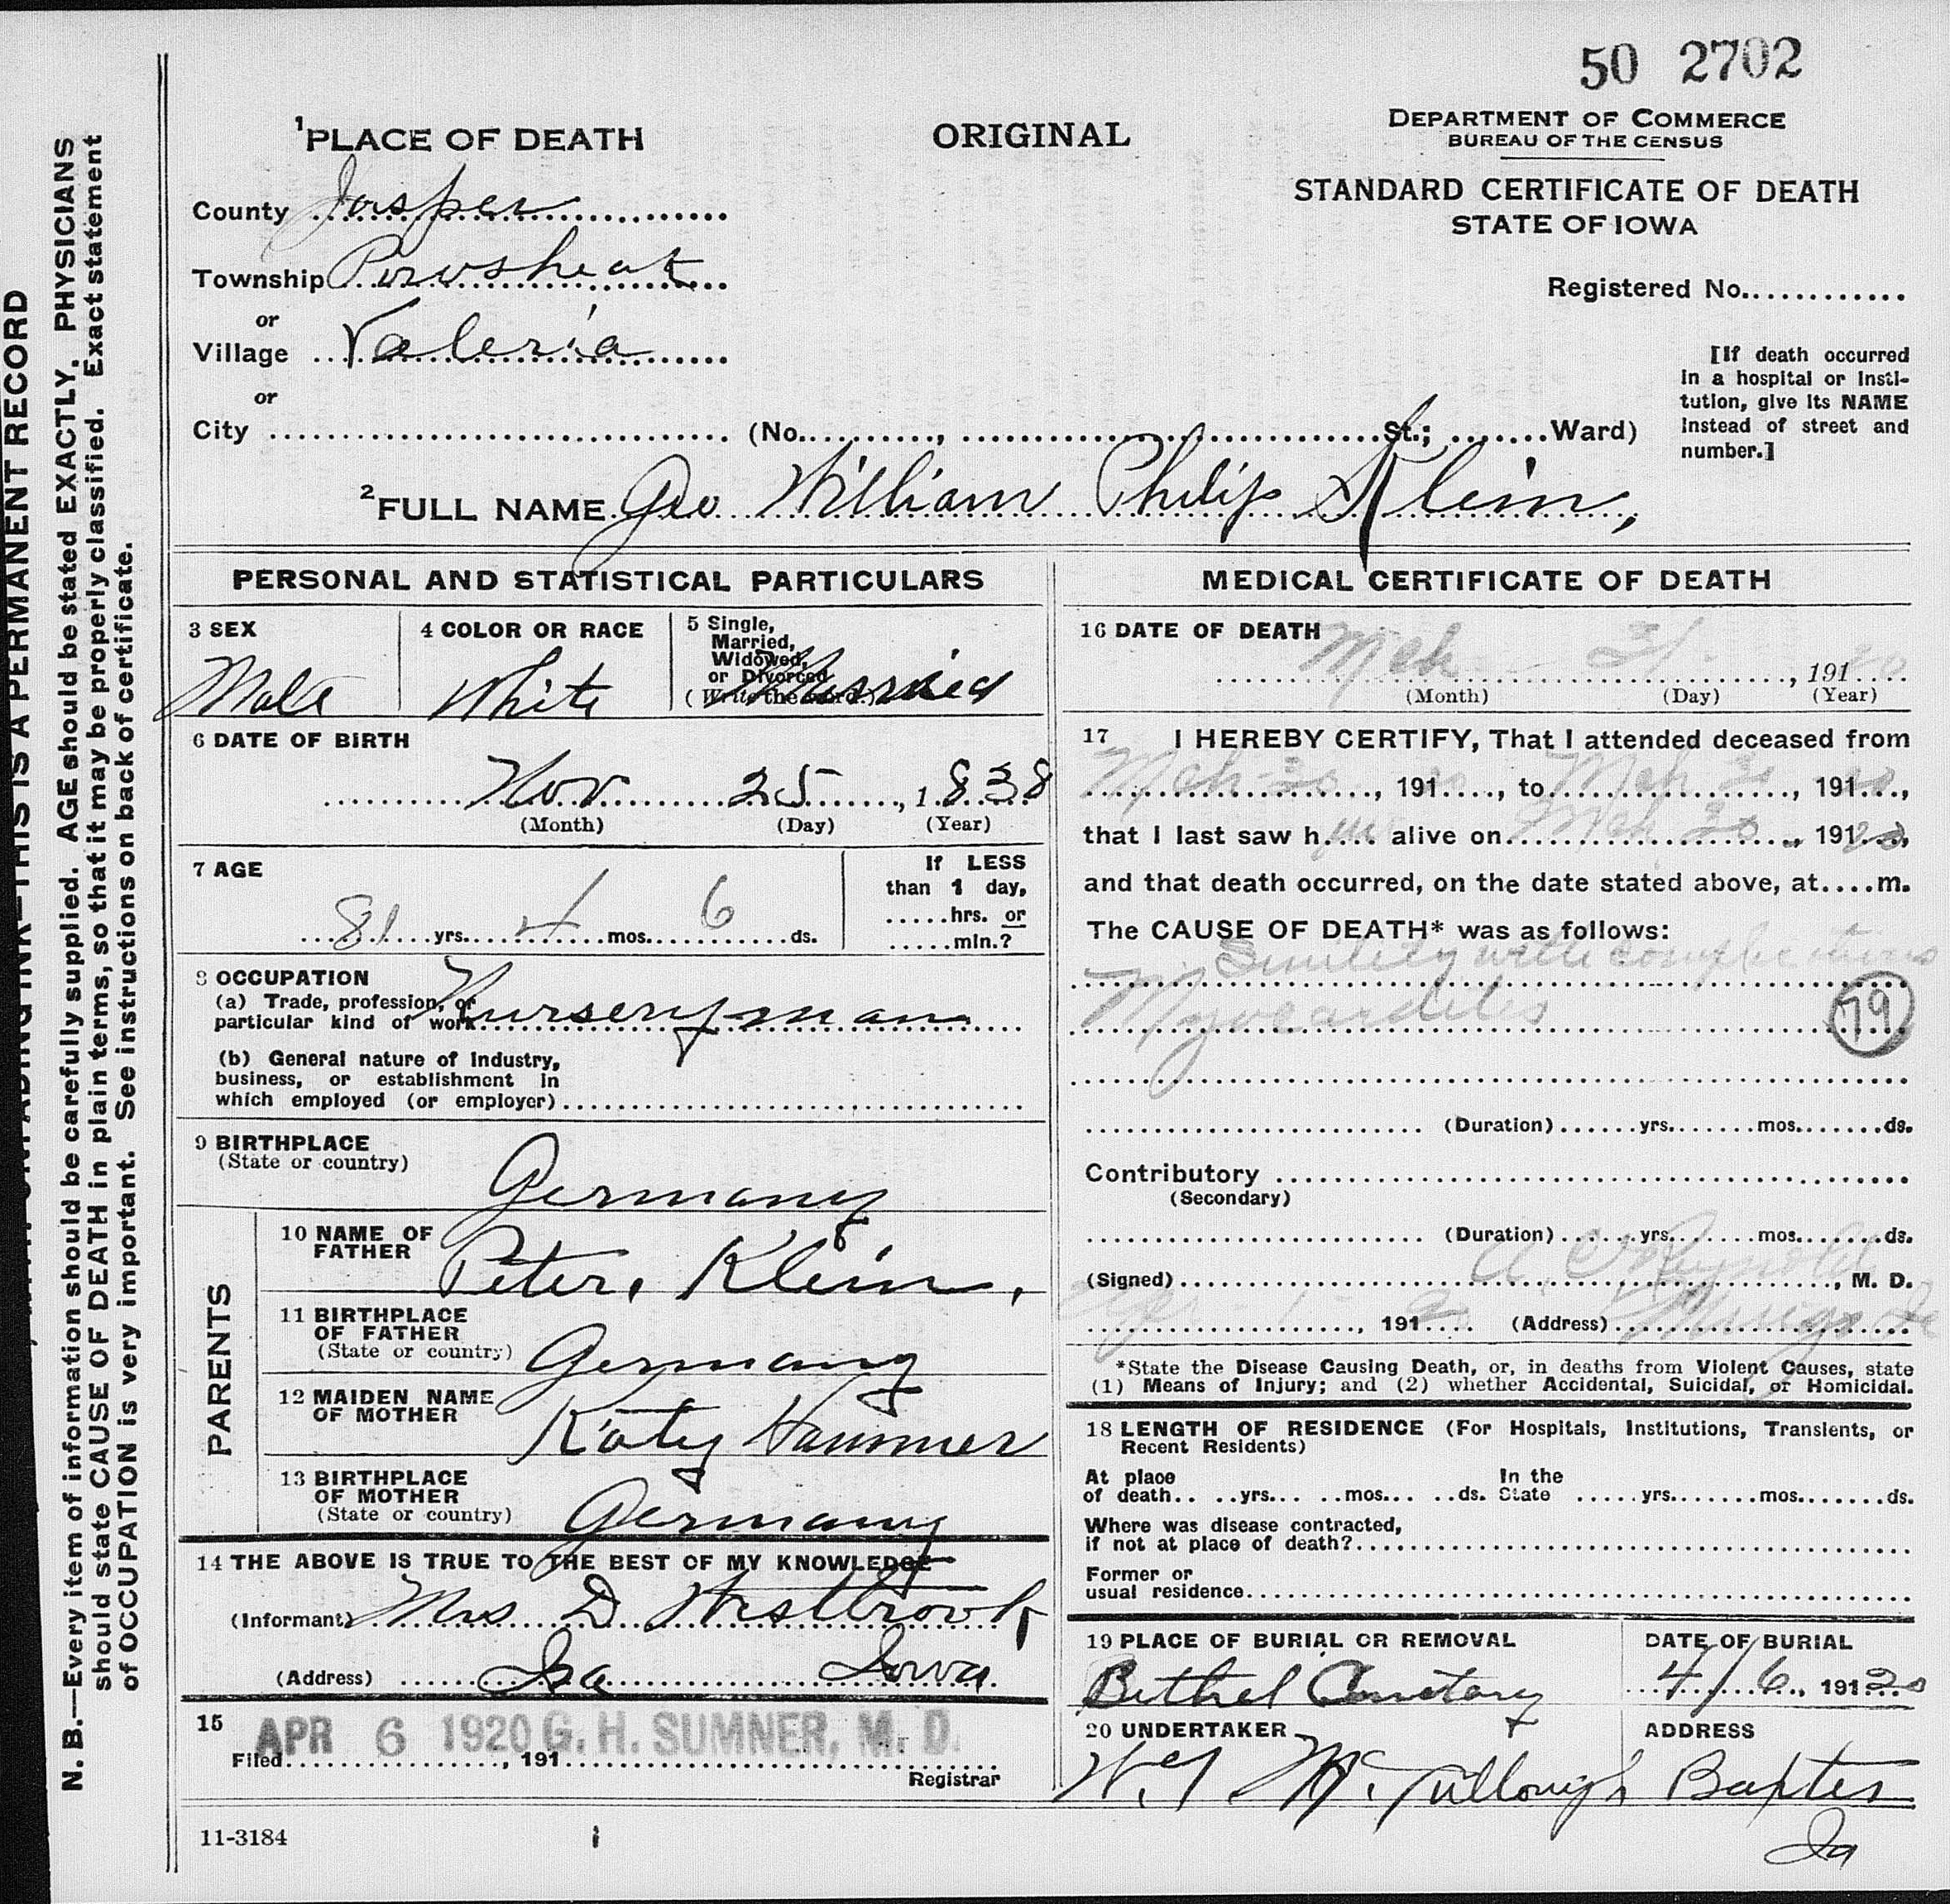 50 2702
DEPARTMENT OF COMMERCE
BUREAU OF THE CENSUS
STANDARD CERTIFICATE OF DEATH
STATE OF IOWA
Registered No.
[If death occurred
in a hospital or insti-
tution, give its NAME
instead of street and
number.]
ORIGINAL
1 PLACE OF DEATH
County Jasper
Township Powsheak
or
Village Valeria
or
City (No. , St.; Ward)
2 FULL NAME Geo William Philip Klein,
PERSONAL AND STATISTICAL PARTICULARS
3 SEX
Male
4 COLOR OR RACE
White
5 Single,
Married,
Widowed,
or Divorced
(Write the word.)
Married
6 DATE OF BIRTH
Nov 25, 1838
(Month) (Day) (Year)
7 AGE
81 yrs. 4 mos. 6 ds.
If LESS
than 1 day,
hrs. or
min.?
8 OCCUPATION
(a) Trade, profession, or
particular kind of work Nurseryman
(b) General nature of Industry,
business, or establishment in
which employed (or employer)
9 BIRTHPLACE
(State or country)
Germany
PARENTS
10 NAME OF
FATHER
Peter, Klein,
11 BIRTHPLACE
OF FATHER
(State or country)
Germany
12 MAIDEN NAME
OF MOTHER
Katy Hammer
13 BIRTHPLACE
OF MOTHER
(State or country)
Germany
14 THE ABOVE IS TRUE TO THE BEST OF MY KNOWLEDGE
(Informant) Mrs D Westbrook
(Address) Ira Iowa.
15
APR 6 1920 G. H. SUMNER, M. D.
Filed , 191
Registrar
11-3184
MEDICAL CERTIFICATE OF DEATH
16 DATE OF DEATH
Mch 31 , 191 20
(Month) (Day) (Year)
17 I HEREBY CERTIFY, That I attended deceased from
Mch 30, 191 20, to Mch 30, 191 20,
that I last saw h im alive on Mch 30, 191 20,
and that death occurred, on the date stated above, at m.
The CAUSE OF DEATH* was as follows:
Senility with complications
Myocardites
79
(Duration) yrs. mos. ds.
Contributory
(Secondary)
(Duration) yrs. mos. ds.
(Signed) A. C. Reynolds, M. D.
Apr 1, 191 20 (Address) Mingo Ia
*State the Disease Causing Death, or, in deaths from Violent Causes, state
(1) Means of Injury; and (2) whether Accidental, Suicidal, or Homicidal.
18 LENGTH OF RESIDENCE (For Hospitals, Institutions, Transients, or
Recent Residents)
At place
of death yrs. mos. ds.
In the
State yrs. mos. ds.
Where was disease contracted,
if not at place of death?
Former or
usual residence
19 PLACE OF BURIAL OR REMOVAL
Bethel Cemetary
DATE OF BURIAL
4/6, 191 20
20 UNDERTAKER
McCullough
ADDRESS
Baxter
Ia
THIS IS A PERMANENT RECORD
N. B.—Every item of information should be carefully supplied. AGE should be stated EXACTLY. PHYSICIANS
should state CAUSE OF DEATH in plain terms, so that it may be properly classified. Exact statement
of OCCUPATION is very important. See instructions on back of certificate.